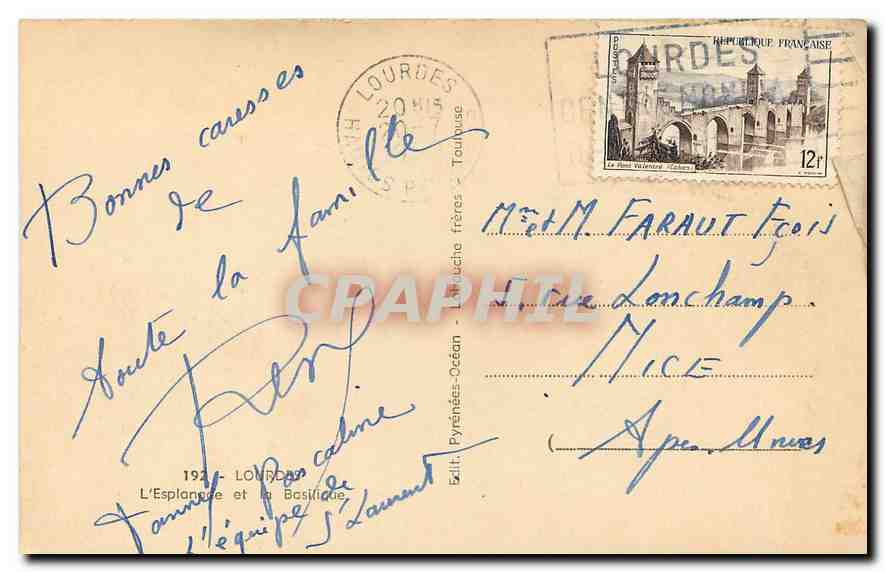 Bonnes caresses
de
toute la famille
René
Pascaline
L'équipe de
St Laurent
192 - LOURDES
L'Esplanade et la Basilique
Edit. Pyrénées-Océan - Labouche frères - Toulouse
LOURDES
20 H15
20-7
LOURDES
POSTES
REPUBLIQUE FRANÇAISE
Le Pont Valentré (Cahors)
12F
Mme et M. FARAUT Fçois
5, rue Lonchamp.
NICE
(Alpes-Mmes
CPAPHIL